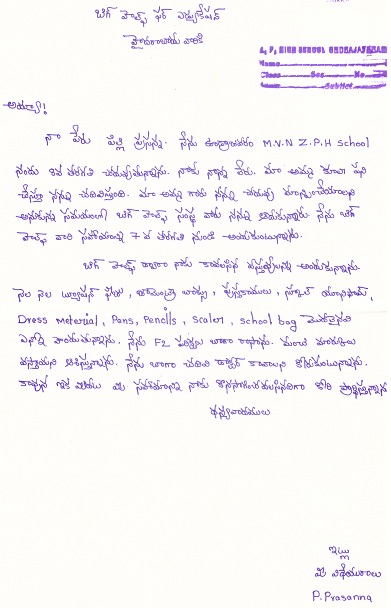 బిగ్ హెల్ప్ ఫర్ ఎడ్యుకేషన్
హైదరాబాదు వారికి
Z. P. HIGH SCHOOL
Name
Class Sec No
Subject
అయ్యా!
నా పేరు పెల్లి ప్రసన్న. నేను M.V.N Z.P.H School
నందు 8వ తరగతి చదువుతున్నాను. నాకు నాన్న లేరు. మా అమ్మ కూలి పని
చేస్తూ నన్ను చదివిస్తుంది. మా అమ్మ గారు నన్ను చదువు
అనుకున్న సమయంలో బిగ్ హెల్ప్ సంస్థ వారు నన్ను ఆదుకున్నారు. నేను బిగ్
హెల్ప్ వారి సహాయాన్ని 7వ తరగతి నుండి అందుకుంటున్నాను.
బిగ్ హెల్ప్ ద్వారా నాకు కావలసిన వస్తువులన్ని అందుకున్నాను.
నెల నెల ట్యూషన్ ఫీజు, పుస్తకములు, స్కూల్ యూనిఫామ్,
Dress meterial, Pens, Pencils, scaler, school bag మొదలైనవి
ఎన్నో పొందుతున్నాను. నేను F2 పరీక్షలు బాగా రాసాను. మంచి మార్కులు
వస్తాయని ఆశిస్తున్నాను. నేను బాగా చదివి డాక్టర్ కావాలని కోరుకుంటున్నాను.
కావున ఇక మీదట మీ సహాయాన్ని నాకు కొనసాగించవలసినదిగా కోరి ప్రార్థిస్తున్నాను
ధన్యవాదములు
ఇట్లు
మీ విధేయురాలు
P. Prasanna